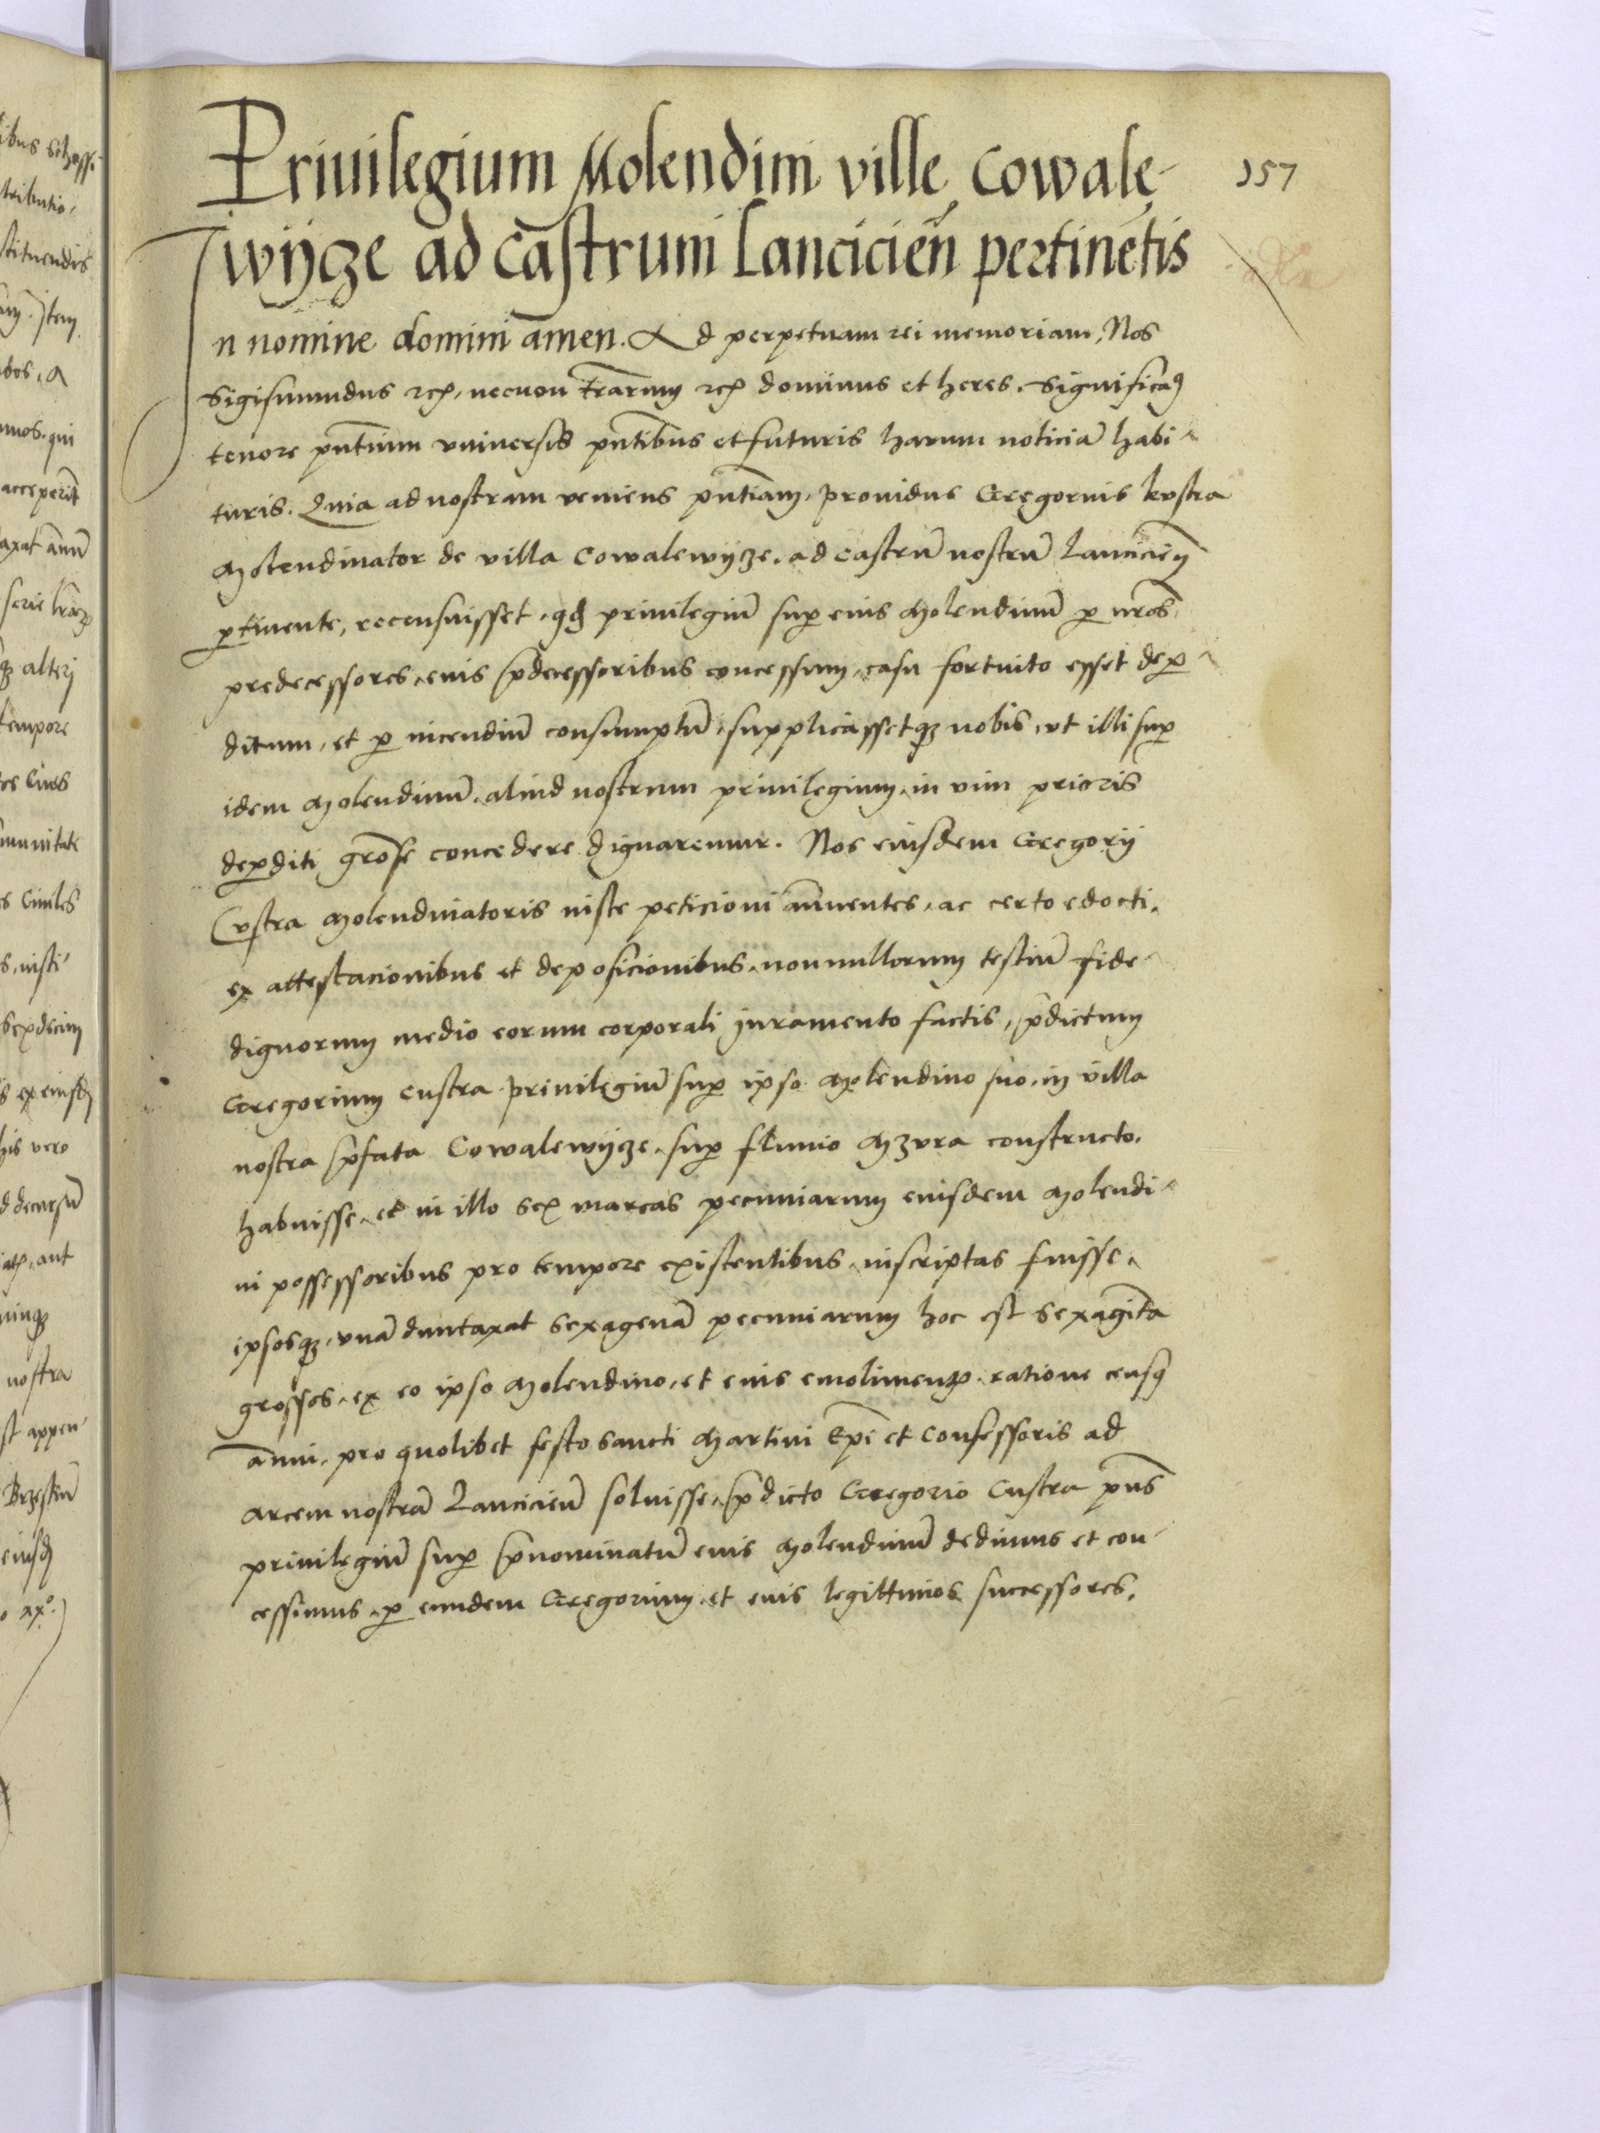 157
Priuilegium Molendini ville Cowale-
wÿcze ad Castrum Lancicień pertinētis
In nomine domini amen. Ad perpetuam rei memoriam, Nos
Sigismundus rex, necnon trarum rex dominus et heres. Significam9
tenore pn̄tium vniuersis pn̄tibus et futuris harum noticiā habi-
turis. Quia ad nostram veniens pn̄tiam, prouidus Gregorius kustra
Molendinator de villa Cowalewÿcze, ad castrū nostrū Lancicień
ptinente, recensuisset, qd priuilegiū sup eius Molendinū p nr̄os
predecessores, eius pdecessoribus concessum, casu fortuito esset dep-
ditum, et p incendiū consumptū, supplicassetq3 nobis, vt illi sup
idem Molendinū, aliud nostrum priuilegium, in vim prioris
depditi grōse concedere dignaremur. Nos eiusdem Gregorij
Custra Molendinatoris iuste peticioni ānuentes, ac certo edocti,
ex attestacionibus et deposicionibus, nonnullorum testiū fide-
dignorum medio eorum corporali Juramento factis, pdictum
Gregorium custra priuilegiū sup ipso Molendino suo, in villa
nostra pfata Cowalewÿcze, sup fluuio Mzura constructo,
habuisse, et in illo sex marcas pecuniarum eiusdem Molendi-
ni possessoribus pro tempore existentibus, inscriptas fuisse,
ipsosq3, vnā duntaxat sexagenā pecuniarum hoc est sexaginta
grossos, ex eo ipso Molendino, et eius emolimentis, ratione census
ānui, pro quolibet festo sancti Martini Ep̄i et Confessoris ad
arcem nostrā Lancicień soluisse, pdicto Gregorio Custra pn̄s
priuilegiū sup pnominatū eius Molendinū dedimus et con-
cessimus, p eundem Gregorium, et eius legittimos successores,